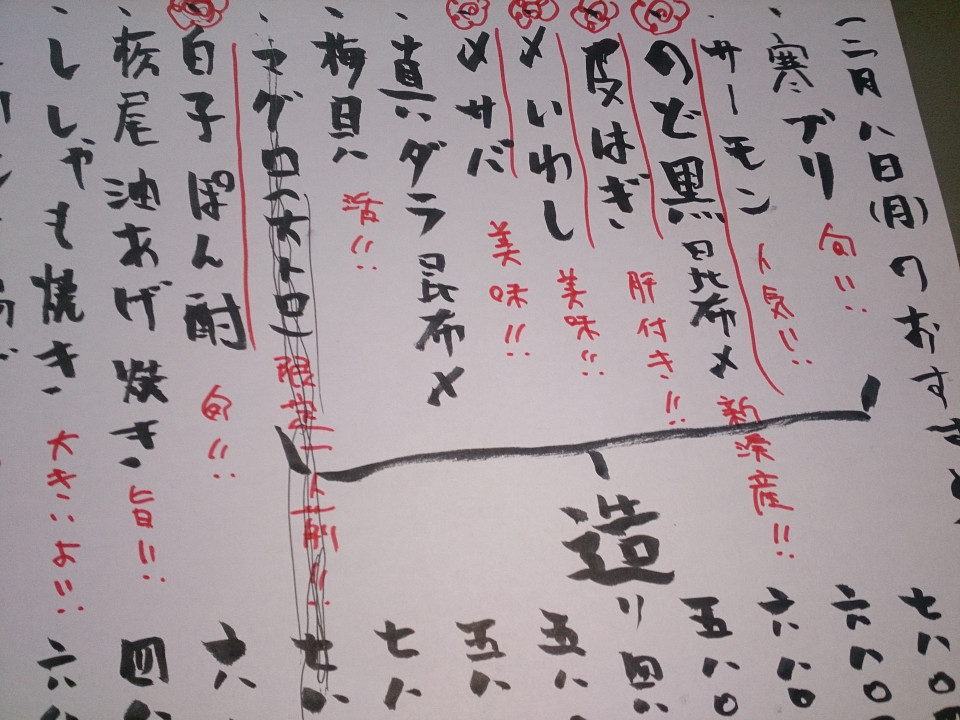 二月八日(月)のおすすめ
・寒ブリ 旬!!
・サーモン 人気!!
のど黒昆布〆 新潟産!!
皮はぎ 肝付き!!
〆いわし 美味!!
〆サバ 美味!!
・真ダラ昆布〆
・梅貝 活!!
・マグロ(大トロ) 限定一人前!!
白子ぽん酢 旬!!
・栃尾油あげ焼き 旨!!
・ししゃも焼き 大きいよ!!
造り
七八〇
六八〇
六八〇
五八〇
四八
五八
五八
七八
七八
六八
四八
六八